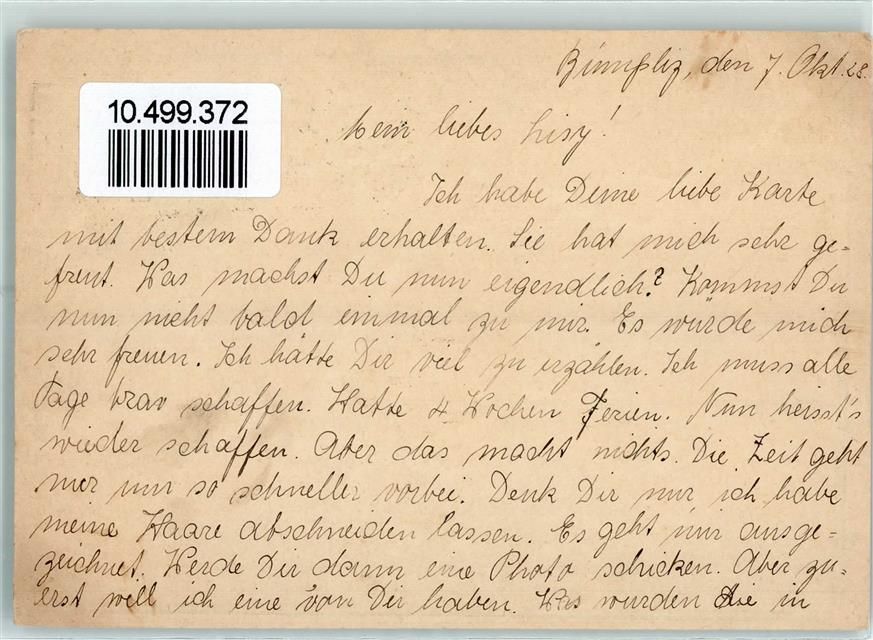 Bümpliz, den 7. Okt. 28.
10.499.372
Mein liebes Lisy!
Ich habe Deine liebe Karte
mit bestem Dank erhalten. Sie hat mich sehr ge-
freut. Was machst Du nun eigendlich? Kommst Du
nun nicht bald einmal zu mir. Es würde mich
sehr freuen. Ich hätte Dir viel zu erzählen. Ich muss alle
Tage brav schaffen. Hatte 4 Wochen Ferien. Nun heisst's
wieder schaffen. Aber das macht nichts. Die Zeit geht
mir um so schneller vorbei. Denk Dir nur ich habe
meine Haare abschneiden lassen. Es geht mir ausge-
zeichnet. Werde Dir dann eine Photo schicken. Aber zu-
erst will ich eine von Dir haben. Was wurden die in